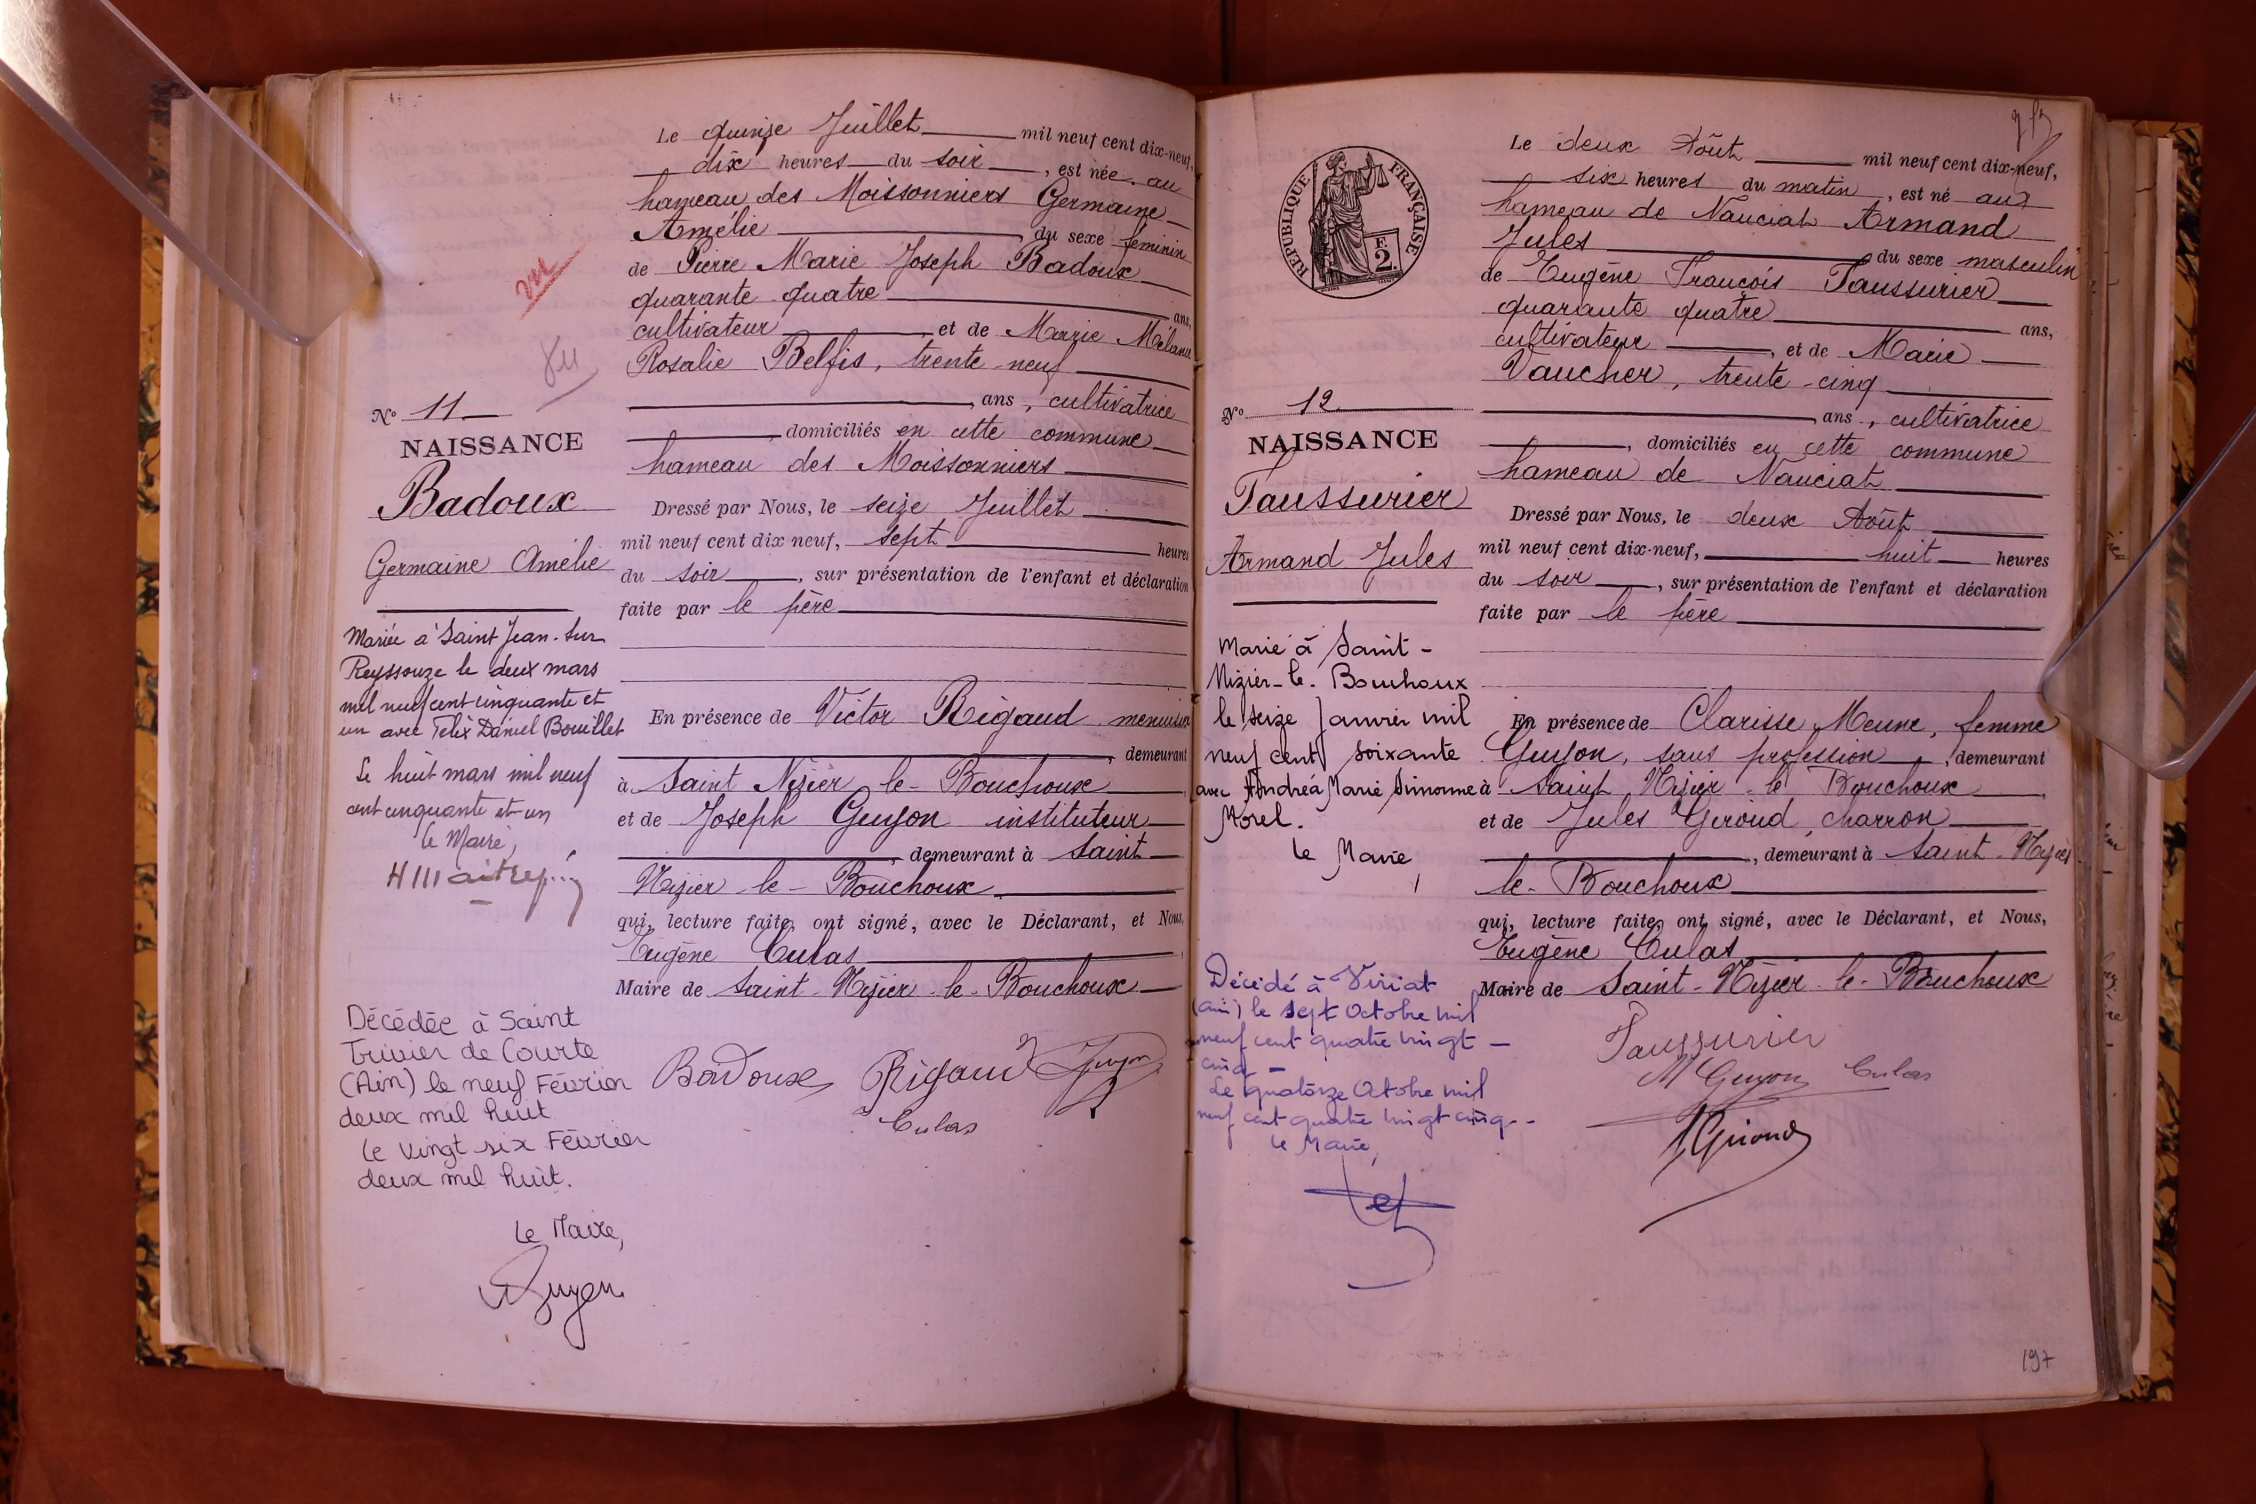 Le quinze Juillet mil neuf cent dix-neuf,
dix heures du soir, est née au
hameau des Moissonniers Germaine
Amélie du sexe feminin
de Pierre Marie Joseph Badoux
quarante quatre ans,
cultivateur, et de Marie Mélanie
Rosalie Belfis, trente-neuf
ans, cultivatrice
domiciliés en cette commune
hameau des Moissonniers
Dressé par Nous, le seize Juillet
mil neuf cent dix neuf, sept heures
du soir, sur présentation de l'enfant et déclaration
faite par le père
En présence de Victor Rigaud menuisier
, demeurant
à Saint Nizier le-Bouchoux
et de Joseph Guyon instituteur
, demeurant à Saint
Nizier-le-Bouchoux
qui, lecture faite, ont signé, avec le Déclarant, et Nous,
Eugène Culas
Maire de Saint-Nizier-le-Bouchoux
Badoux Rigaud Guyon
Culas
vu
N° 11
NAISSANCE
Badoux
Germaine Amélie
Mariée à Saint Jean-sur
Reyssouze le deux mars
mil neuf cent cinquante et
un avec Félix Daniel Bouillet
Le huit mars mil neuf
cent cinquante et un
Le Maire,
Décédée à Saint
Trivier de Courte
(Ain) le neuf Février
deux mil huit
Le vingt six Février
deux mil huit.
Le Maire,
Guyon
Le deux Août mil neuf cent dix-neuf,
six heures du matin, est né au
hameau de Nauciat Armand
Jules du sexe masculin
de Eugène François Taussurier
quarante quatre ans,
cultivateur, et de Marie
Vaucher, trente-cinq
ans, cultivatrice
, domiciliés en cette commune
hameau de Nauciat
Dressé par Nous, le deux Août
mil neuf cent dix-neuf, huit heures
du soir, sur présentation de l'enfant et déclaration
faite par le père
En présence de Clarisse Meune, femme
Guyon, sans profession, demeurant
à Saint Nizier-le Bouchoux
et de Jules Giroud, charron
, demeurant à Saint-Nizier
le-Bouchoux
qui, lecture faite, ont signé, avec le Déclarant, et Nous,
Eugène Culas
Maire de Saint-Nizier-le-Bouchoux
Taussurier
M Guyon Culas
J Giroud
RÉPUBLIQUE FRANÇAISE
F
2.
N° 12
NAISSANCE
Taussurier
Armand Jules
Marié à Saint-
Nizier-le-Bouchoux
le seize Janvier mil
neuf cent soixante
avec Andréa Marie Simonne
Morel.
Le Maire,
Décédé à Viriat
(Ain) le sept Octobre mil
neuf cent quatre vingt-
cinq-
Le quatorze Octobre mil
neuf cent quatre vingt cinq-
Le Maire,
197